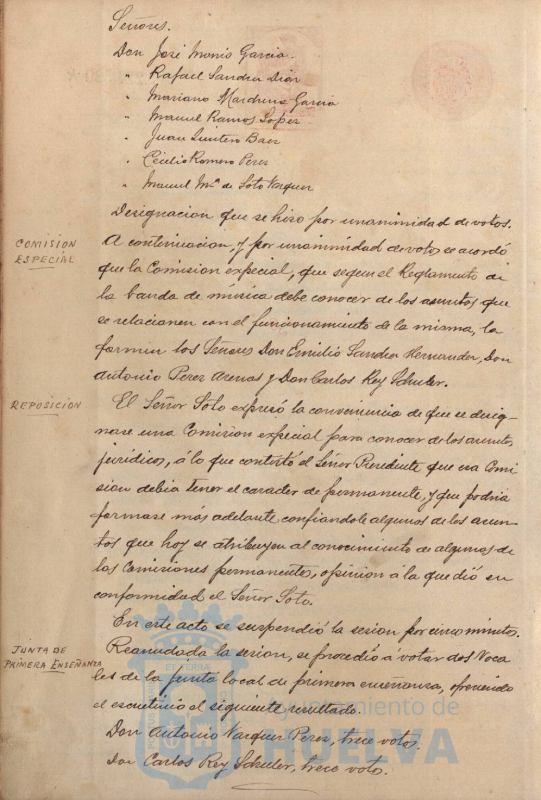 Señores.
Don José Monis Garcia.
" Rafael Sanchez Diaz
" Mariano Garcia
" Manuel Ramos Lopez
" Juan Quintero Baez
" Cecilio Romero Perez
" Manuel Mª de Soto Vazquez
Designacion que se hizo por unanimidad de votos.
COMISION
ESPECIAL
A continuacion, y por unanimidad de votos se acordó
que la Comision especial, que segun el Reglamento de
la banda de música debe conocer de los asuntos que
se relacionen con el funcionamiento de la misma, la
formen los Señores Don Emilio Sanchez Hernandez, Don
Antonio Perez Arenas y Don Carlos Rey Schuler.
REPOSICION
El Señor Soto expresó la conveniencia de que se desig-
nase una Comision especial para conocer de los asuntos
jurídicos, á lo que contestó el Señor Presidente que esa Comi
sion debia tener el caracter de permanente, y que podria
formarse más adelante confiandole algunos de los asun-
tos que hoy se atribuyen al conocimiento de algunas de
las Comisiones permanentes, opinion á la que dió su
conformidad el Señor Soto.
En este acto se suspendió la sesion por cinco minutos.
JUNTA DE
PRIMERA ENSEÑANZA
Reanudada la sesion, se procedió á votar dos Voca
les de la junta local de primera enseñanza, ofreciendo
el escrutinio el siguiente resultado.
Don Antonio Vazquez Perez, trece votos.
Don Carlos Rey Schuler, trece votos.
Ayuntamiento de
HUELVA